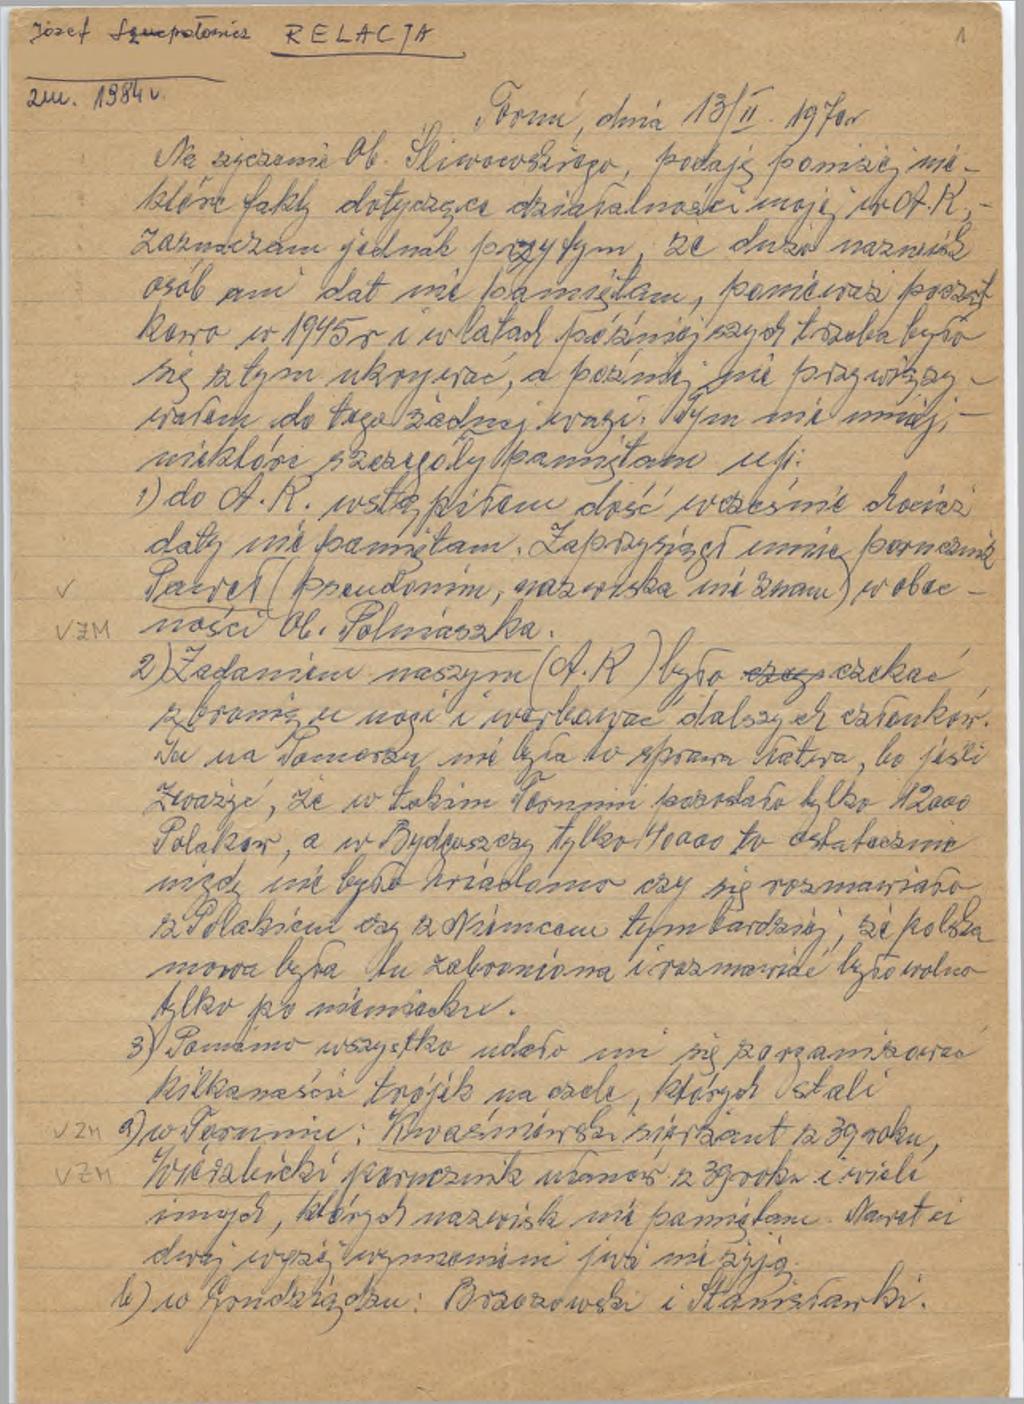 Józef RELACJA
1
zm. 1984 r.
Toruń, dnia 13/II. 1970r
Na życzenie Ob. Śliwowskiego, podaję poniżej nie-
które fakty dotyczące działalności mojej w A.K.,-
zaznaczam jednak przy tym, że dużo nazwisk
osób ani dat nie pamiętam, ponieważ począt
kowo w 1945r i w latach późniejszych trzeba było
się z tym ukrywać, a później nie przywiązy-
wałem do tego żadnej wagi. Tym nie mniej,-
niektóre szczegóły pamiętam np:
1) do A.K. wstąpiłem dość wcześnie chociaż
daty nie pamiętam. Zaprzysiągł mnie porucznik
V Paweł (pseudonim, nazwiska nie znam) w obec-
VŻM ności Ob. Polniaszka.
2) Zadaniem naszym (A.K) było czekać
z bronią u nogi i werbować dalszych członków.
Tu na Pomorzu nie była to sprawa łatwa, bo jeśli
zważyć, że w takim Toruniu pozostało tylko 12000
Polaków, a w Bydgoszczy tylko 40000 to ostatecznie
nigdy nie było wiadomo czy się rozmawiało
z Polakiem czy z Niemcem tymbardziej, że polska
mowa była tu zabroniona i rozmawiać było wolno
tylko po niemiecku.
3) Pomimo wszystko udało mi się zorganizować
kilkanaście trójek na czele, których stali
VŻM a) w Toruniu: Kwaśniewski sierżant z 39 roku,
VŻM Wierzbicki porucznik ułanów z 39 roku i wiele
innych, których nazwisk nie pamiętam. Nawet ci
dwaj wyżej wymienieni już nie żyją.
b) w Grudziądzu: Brzozowski i Stanisławski.